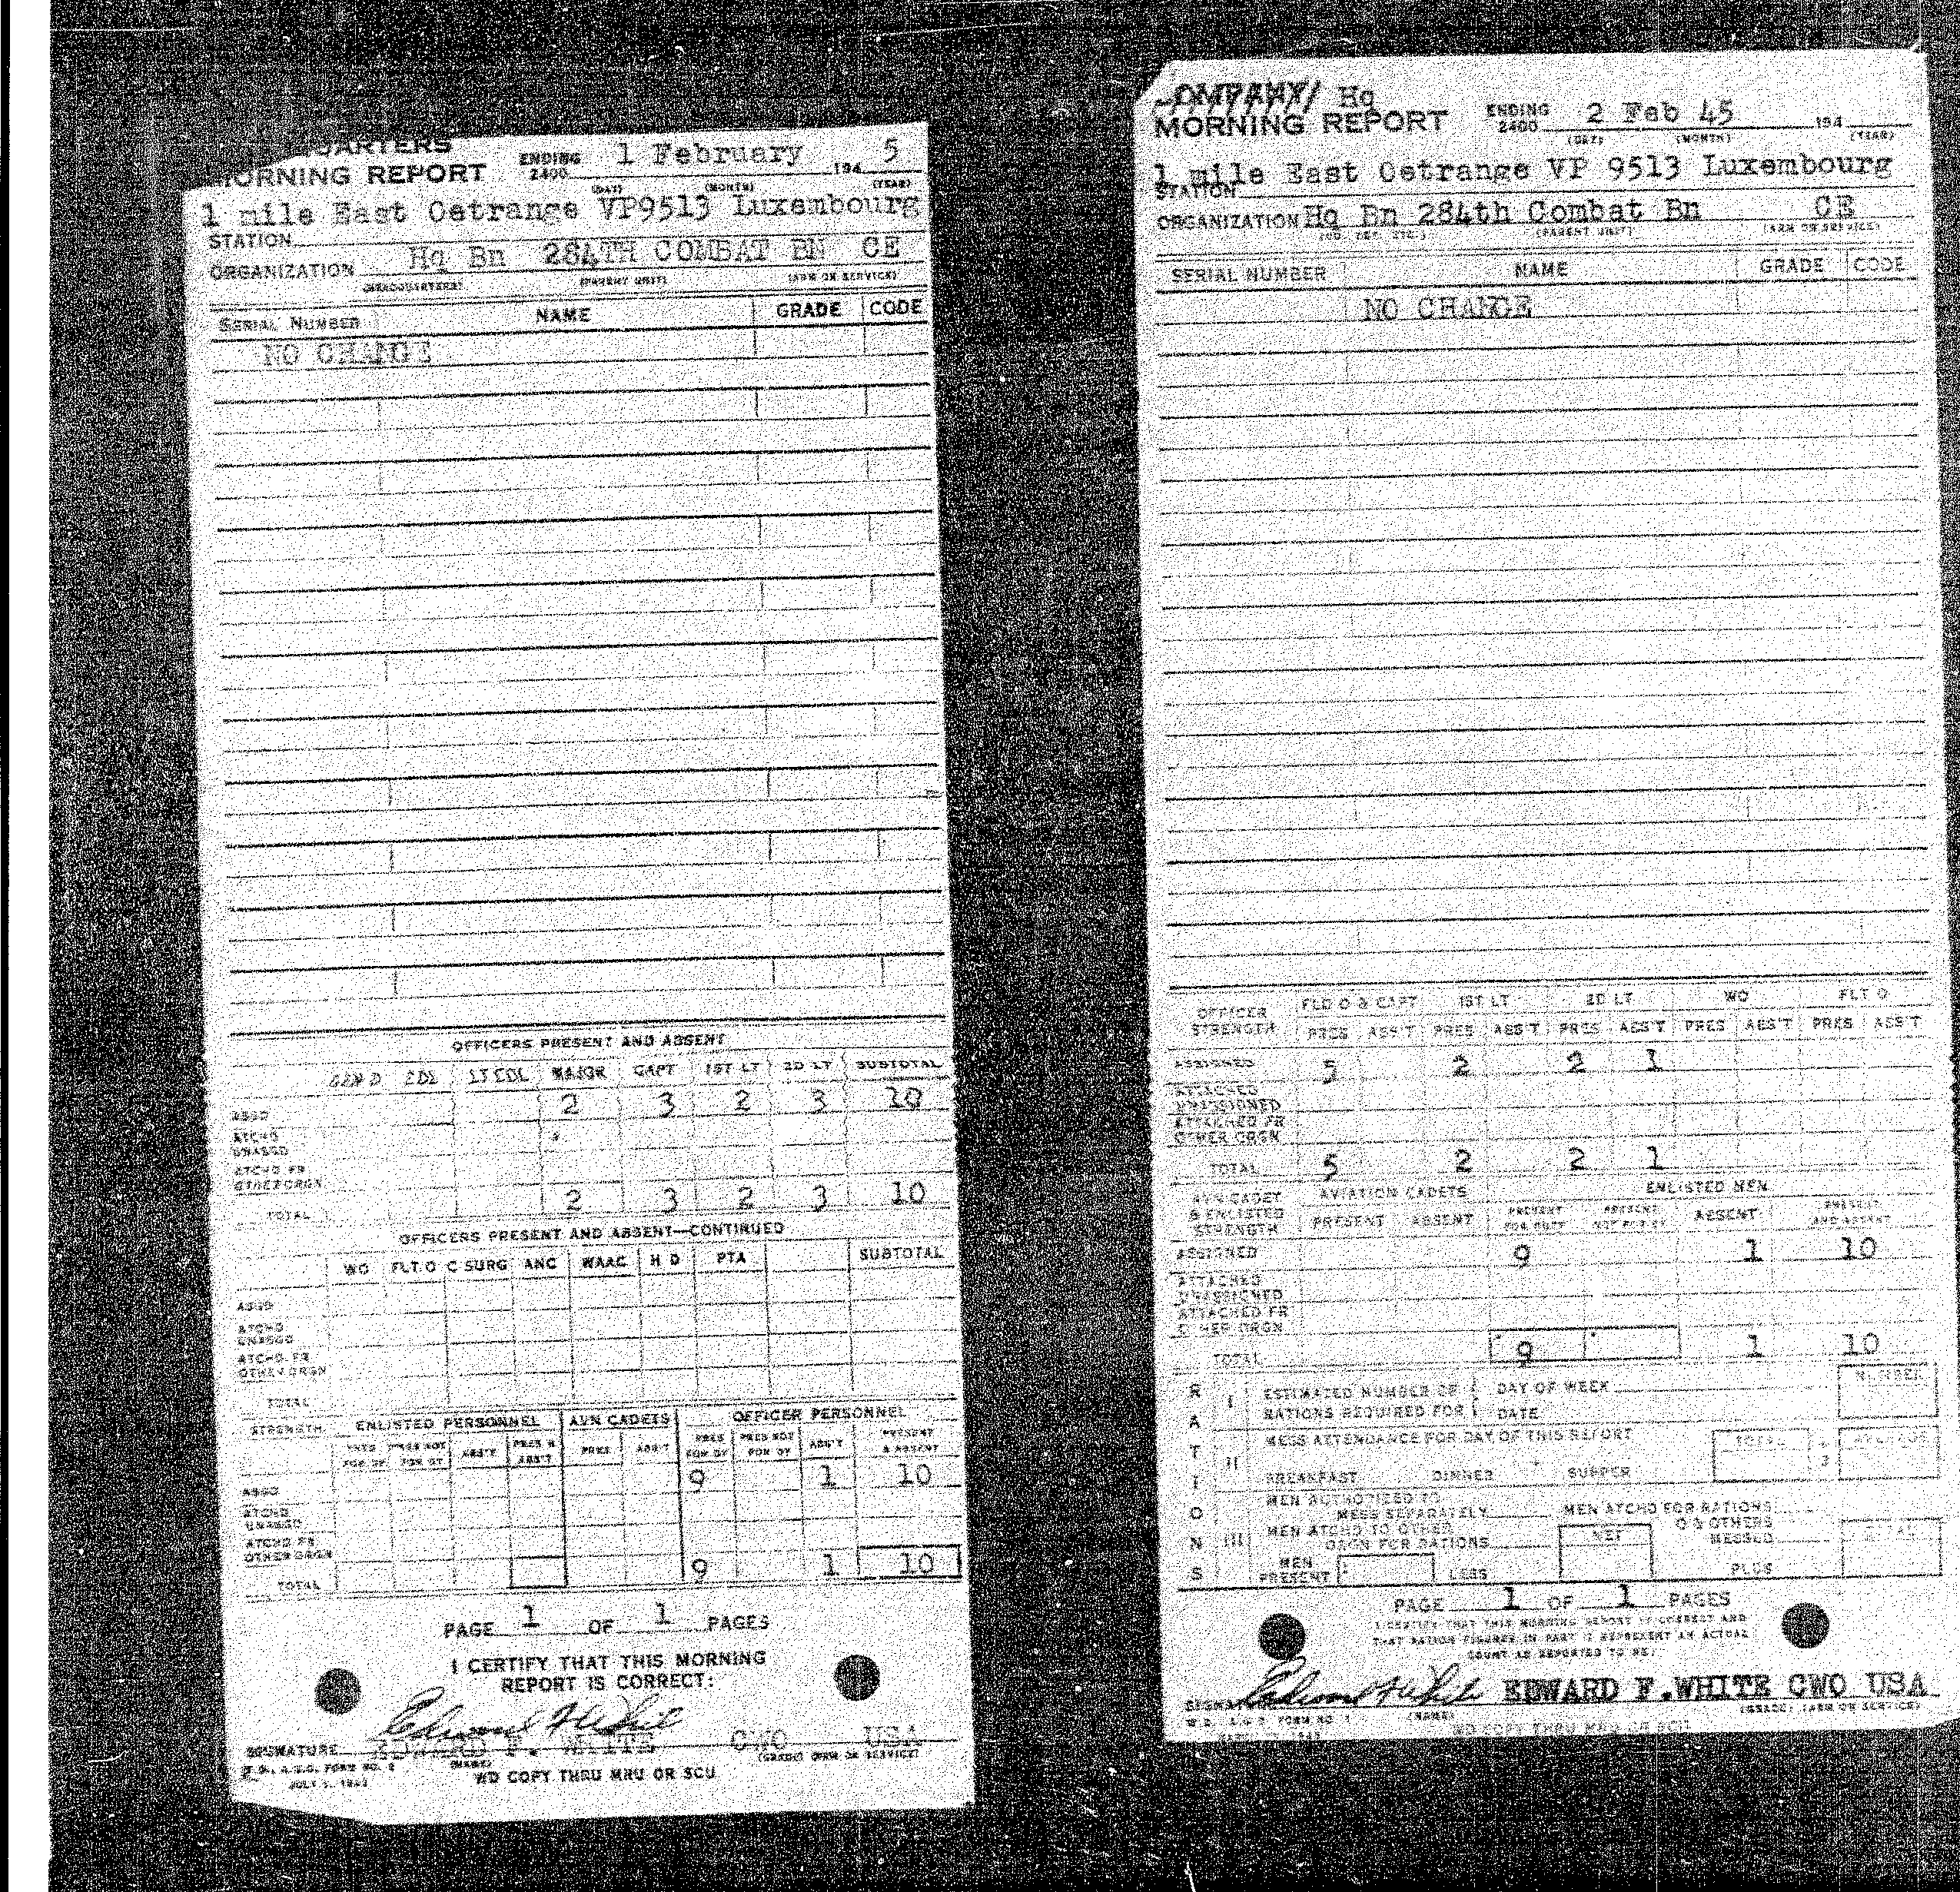 QUARTERS
MORNING REPORT ENDING 2400 1 February 194 5
(DAY) (MONTH) (YEAR)
1 mile East Oetrange VP9513 Luxembourg
STATION
ORGANIZATION Hq Bn 284TH COMBAT BN CE
(HEADQUARTERS) (PARENT UNIT) (ARM OR SERVICE)
SERIAL NUMBER NAME GRADE CODE
NO CHANGE
OFFICERS PRESENT AND ABSENT
GEN O COL LT COL MAJOR CAPT 1ST LT 2D LT SUBTOTAL
ASGD 2 3 2 3 10
ATCHD UNASGD
ATCHD FR OTHER ORGN
TOTAL 2 3 2 3 10
OFFICERS PRESENT AND ABSENT—CONTINUED
WO FLT O C SURG ANC WAAC H D PTA SUBTOTAL
ASGD
ATCHD UNASGD
ATCHD FR OTHER ORGN
TOTAL
STRENGTH ENLISTED PERSONNEL AVN CADETS OFFICER PERSONNEL
PRES FOR DY PRES NOT FOR DY ABS'T PRES & ABS'T PRES ABS'T PRES FOR DY PRES NOT FOR DY ABS'T PRESENT & ABSENT
ASGD 9 1 10
ATCHD UNASGD
ATCHD FR OTHER ORGN
TOTAL 9 1 10
PAGE 1 OF 1 PAGES
I CERTIFY THAT THIS MORNING
REPORT IS CORRECT:
Edward F White
SIGNATURE EDWARD F. WHITE CWO USA
(NAME) (GRADE) (ARM OR SERVICE)
W.D., A.G.O. FORM NO. 2
JULY 1, 1943
WD COPY THRU MRU OR SCU
COMPANY Hq
MORNING REPORT ENDING 2400 2 Feb 45 194
(DAY) (MONTH) (YEAR)
1 mile East Oetrange VP 9513 Luxembourg
STATION
ORGANIZATION Hq Bn 284th Combat Bn CE
(CO. DET. ETC.) (PARENT UNIT) (ARM OR SERVICE)
SERIAL NUMBER NAME GRADE CODE
NO CHANGE
OFFICER STRENGTH FLD O & CAPT 1ST LT 2D LT WO FLT O
PRES ABS'T PRES ABS'T PRES ABS'T PRES ABS'T PRES ABS'T
ASSIGNED 5 2 2 1
ATTACHED UNASSIGNED
ATTACHED FR OTHER ORGN
TOTAL 5 2 2 1
AVN CADET & ENLISTED STRENGTH AVIATION CADETS ENLISTED MEN
PRESENT ABSENT PRESENT FOR DUTY PRESENT NOT FOR DY ABSENT PRESENT AND ABSENT
ASSIGNED 9 1 10
ATTACHED UNASSIGNED
ATTACHED FR OTHER ORGN
TOTAL 9 1 10
RATIONS
I ESTIMATED NUMBER OF RATIONS REQUIRED FOR DAY OF WEEK DATE NUMBER
II MESS ATTENDANCE FOR DAY OF THIS REPORT TOTAL 3 AVERAGE
BREAKFAST DINNER SUPPER
III MEN AUTHORIZED TO MESS SEPARATELY MEN ATCHD FOR RATIONS
MEN ATCHD TO OTHER ORGN FOR RATIONS NET O & OTHERS MESSED
MEN PRESENT LESS PLUS
PAGE 1 OF 1 PAGES
I CERTIFY THAT THIS MORNING REPORT IS CORRECT AND
THAT RATION FIGURES IN PART II REPRESENT AN ACTUAL
COUNT AS REPORTED TO ME:
SIGNATURE Edward F White EDWARD F.WHITE CWO USA
(NAME) (GRADE) (ARM OR SERVICE)
W.D., A.G.O. FORM NO. 1
WD COPY THRU MRU OR SCU